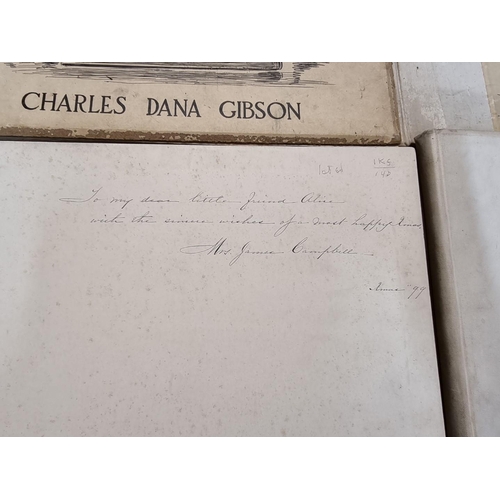 CHARLES DANA GIBSON
To my dear little friend Alice
with the sincere wishes of a most happy Xmas
Mrs James Campbell
Xmas 99